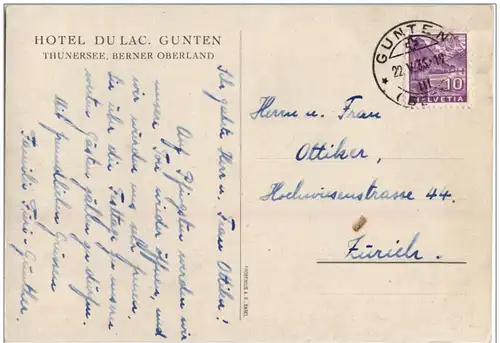 HOTEL DU LAC. GUNTEN
THUNERSEE, BERNER OBERLAND
Ihr geehrte Herr u. Frau Ottiker!
Auf Pfingsten werden wir
unser Tor wieder öffnen, und
wir würden uns sehr freuen,
Sie über die Festtage zu unseren
Gästen zählen zu dürfen.
Mit freundlichen Grüssen
Familie
GUNTEN
22.V.35
HELVETIA
10
Herrn u. Frau
Ottiker,
Hochwiesenstrasse 44.
Zürich.